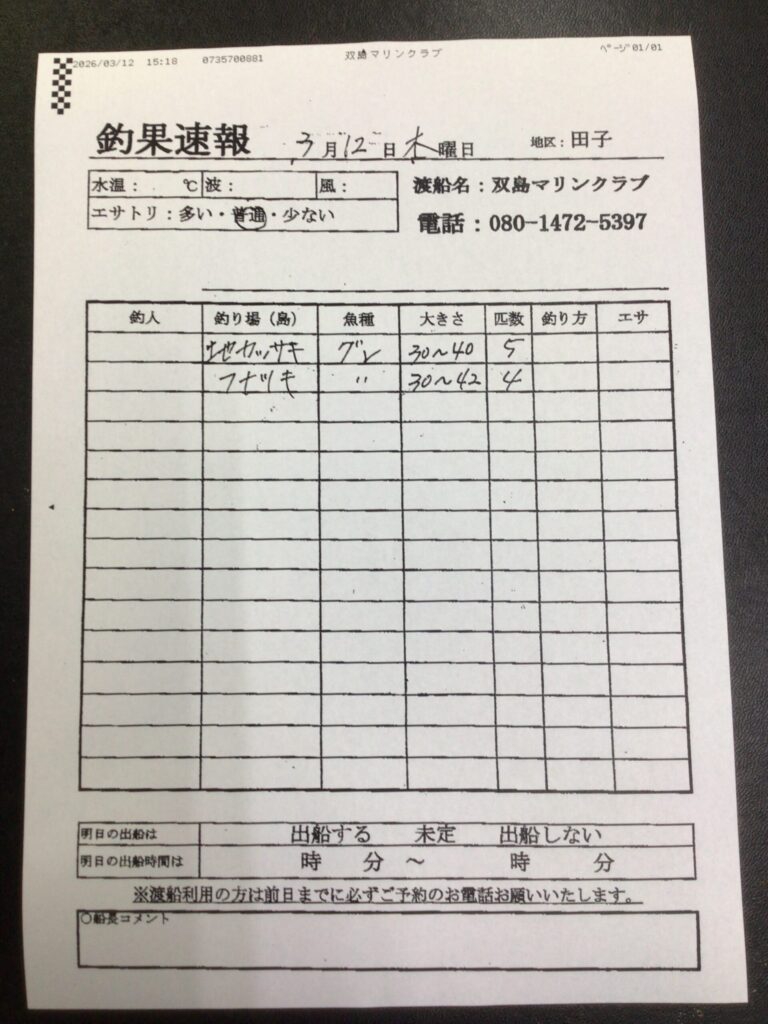 2026/03/12 15:18 0735700881 双島マリンクラブ ページ 01/01
釣果速報 3月12日木曜日 地区：田子
水温： ℃ 波： 風： 渡船名：双島マリンクラブ
エサトリ：多い・普通・少ない 電話：080-1472-5397
釣人 釣り場（島） 魚種 大きさ 匹数 釣り方 エサ
地カッサキ グレ 30～40 5
フナツキ 〃 30～42 4
明日の出船は 出船する 未定 出船しない
明日の出船時間は 時 分 ～ 時 分
※渡船利用の方は前日までに必ずご予約のお電話お願いいたします。
○船長コメント